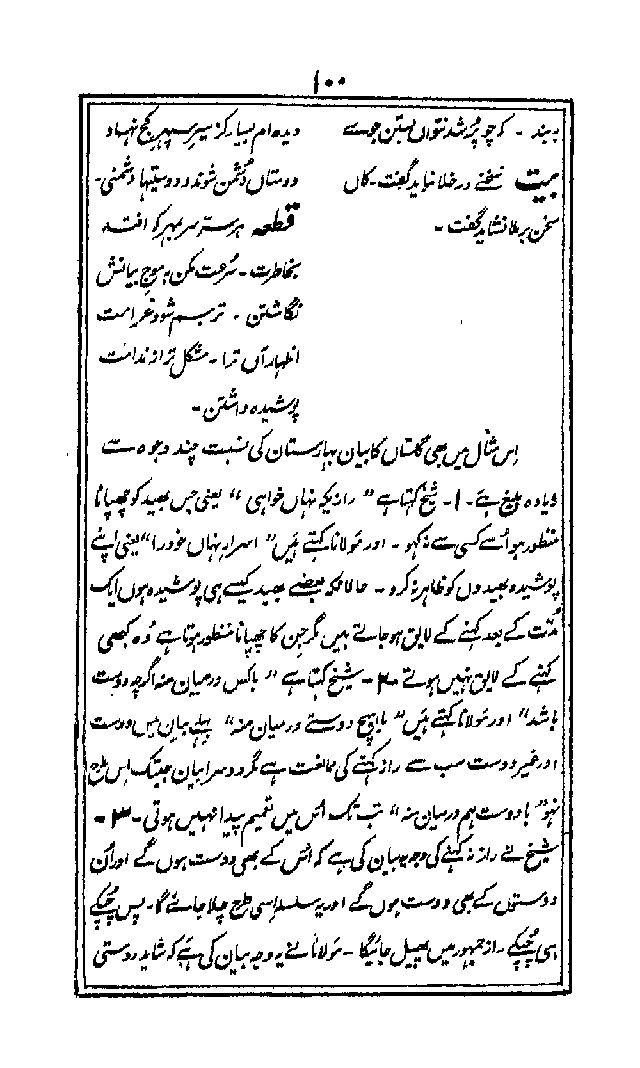 ۱۰۰
ببند - کہ چو پُر شد نتواں بستن جوے
بیت سخنے در خلا نباید گفت - کاں
سخن بر ملا نشاید گفت -
دیدہ ام بسیار کز سیر سپہر کج نہاد
دوستاں دشمن شوند و دوستیہا دشمنی -
قطعہ ہر ستر سر بمہر کہ افتد
بخاطرت - سُرعت مکن بہ موج بیانش
نگاشتن - ترسم شود غرامت
اظہار آں ترا - مشکل تر از ندامت
پوشیدہ داشتن -
اِس مثال میں بھی گلستاں کا بیان بہارستان کی نسبت چند وجوہ سے
زیادہ بلیغ ہے - ۱ - شیخ کہتا ہے " رازیکہ نہاں خواہی " یعنی جس بھید کو چھپانا
منظور ہو اُسے کسی سے نہ کہو - اور مولانا کہتے ہیں " اسرار نہاں خود را " یعنی اپنے
پوشیدہ بھیدوں کو ظاہر نہ کرو - حالانکہ بعضے بھید کیسے ہی پوشیدہ ہوں ایک
مُدّت کے بعد کہنے کے لایق ہو جاتے ہیں مگر جن کا چھپانا منظور ہوتا ہے وُہ کبھی
کہنے کے لایق نہیں ہوتے - ۲ - شیخ کہتا ہے " باکس درمیان منہ اگرچہ دوست
باشد " اور مولانا کہتے ہیں " باہیچ دوستے درمیان منہ " پہلے بیان میں دوست
اور غیر دوست سب سے راز کہنے کی ممانعت ہے مگر دوسرا بیان جبتک اِس طرح
نہو " با دوست ہم درمیان منہ " تب تک اُس میں تعمیم پیدا نہیں ہوتی - ۳ -
شیخ نے راز نہ کہنے کی وجہ بیان کی ہے کہ اُس کے بھی دوست ہوں گے اور اُن
دوستوں کے بھی دوست ہوں گے اور یہ سلسلہ اِسی طرح چلا جائے گا - پس چُپکے
ہی چُپکے راز جمہور میں پھیل جائیگا - مولانا نے یہ وجہ بیان کی ہے کہ شاید دوستی